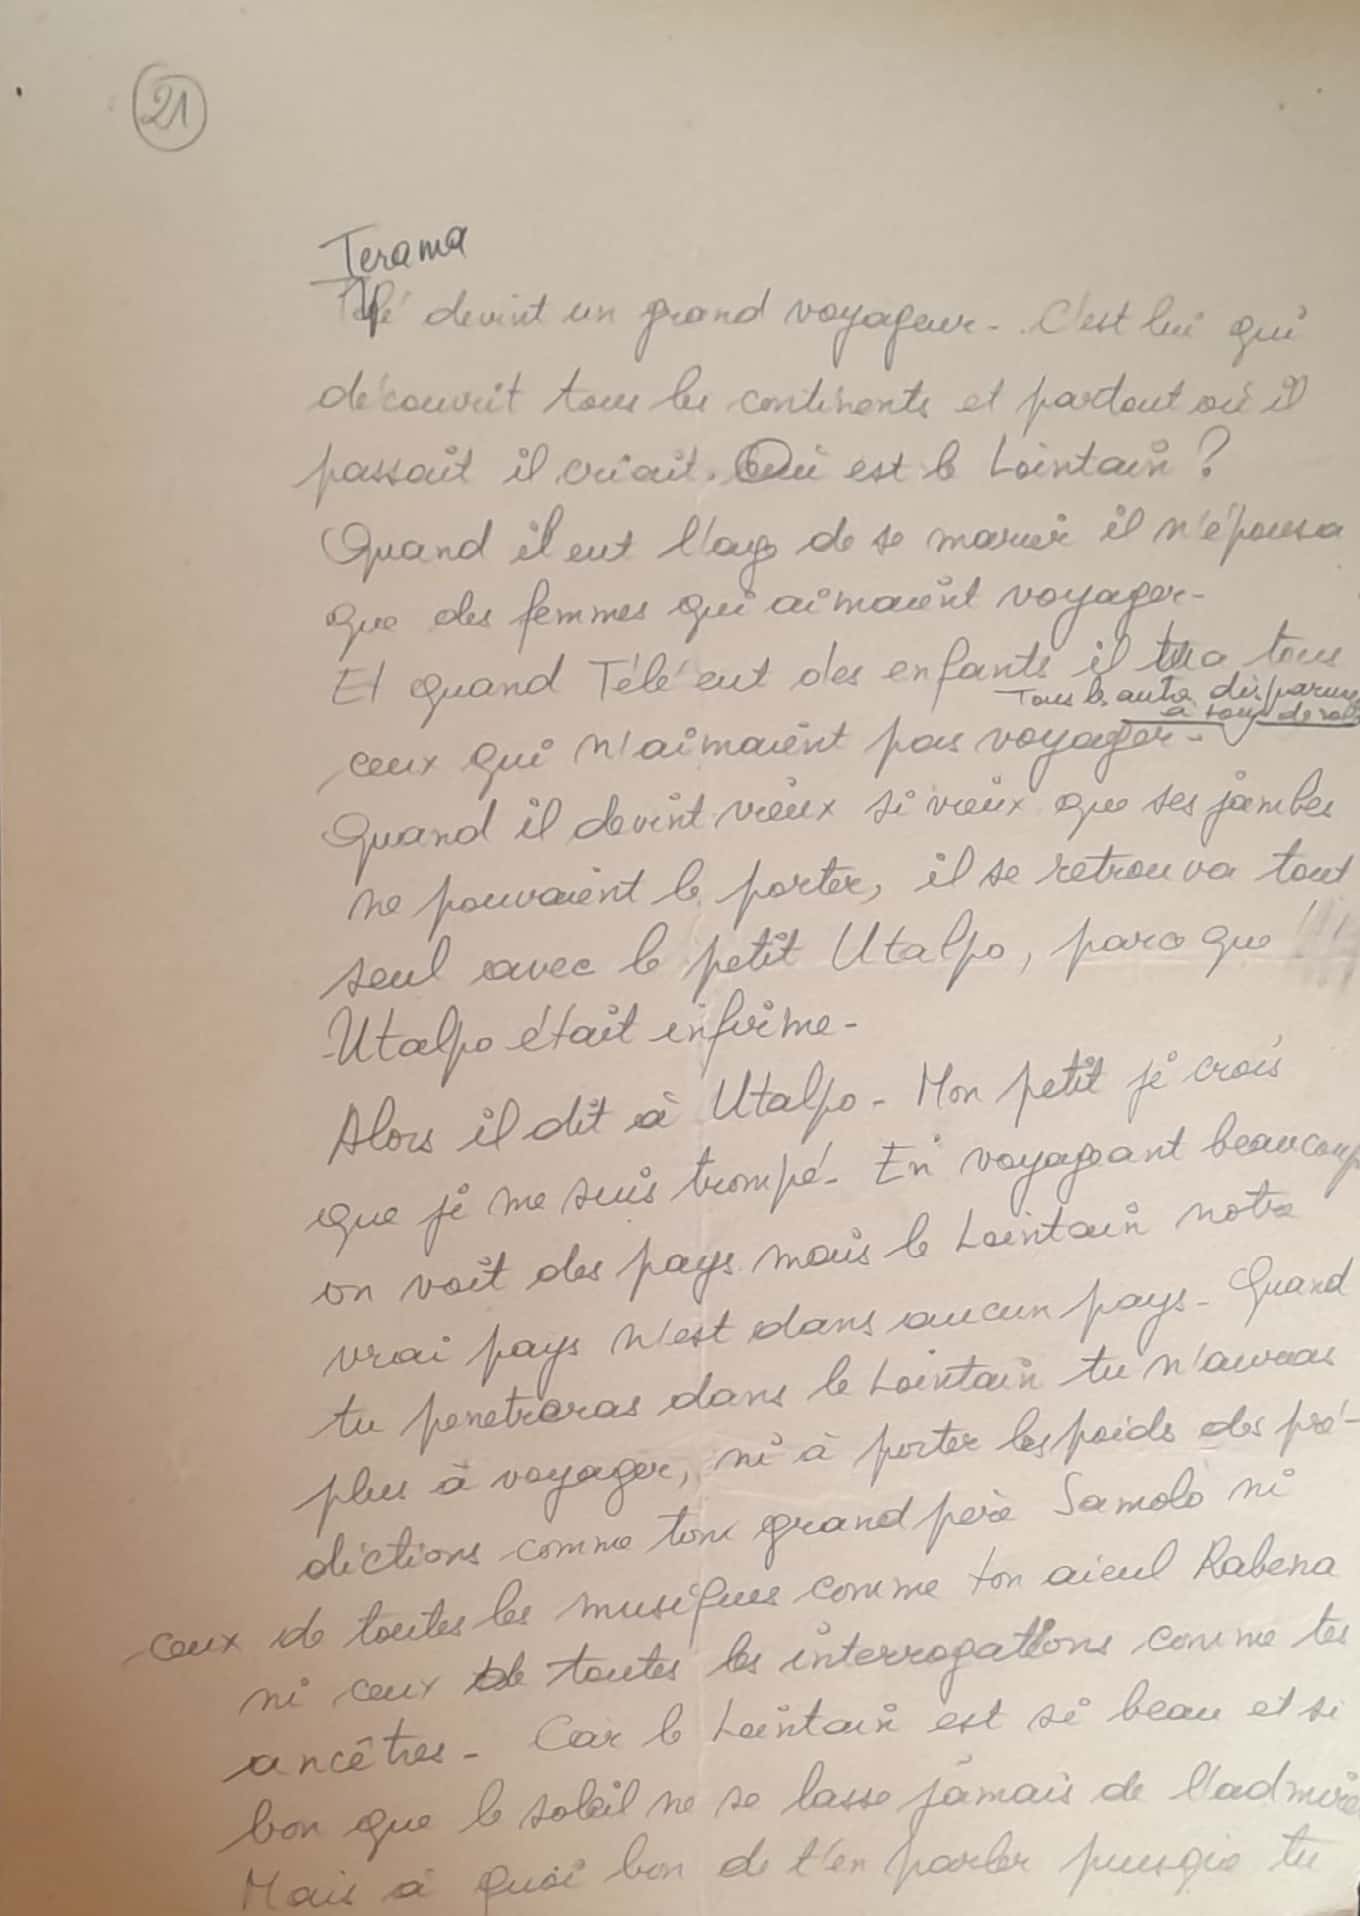 21
Terama
Télé devint un grand voyageur - C'est lui qui
découvrit tous les continents et partout où il
passait il criait. Où est le Lointain ?
Quand il eut l'age de se marier il n'épousa
que des femmes qui aimaient voyager -
Et quand Télé eut des enfants il tua tous
Tous les autres disparurent
à tour de
ceux qui n'aimaient pas voyager -
Quand il devint vieux si vieux que ses jambes
ne pouvaient le porter, il se retrouva tout
seul avec le petit Utalpo, parce que
Utalpo était infirme -
Alors il dit à Utalpo - Mon petit je crois
que je me suis trompé - En voyageant beaucoup
on voit des pays mais le Lointain notre
vrai pays n'est dans aucun pays - Quand
tu penetreras dans le Lointain tu n'auras
plus à voyager, ni à porter les poids des pré-
dictions comme ton grand père Samolo ni
ceux de toutes les musiques comme ton aieul Rabena
ni ceux de toutes les interrogations comme tes
ancêtres - Car le Lointain est si beau et si
bon que le soleil ne se lasse jamais de l'admirer
Mais à quoi bon de t'en parler puisque tu